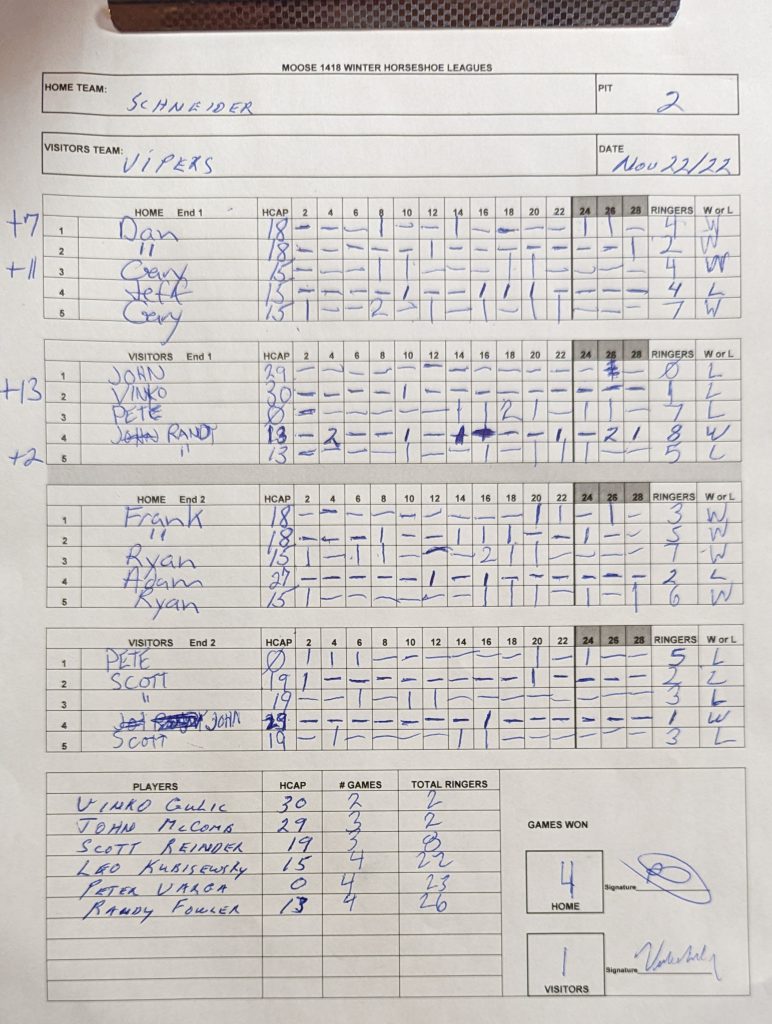 MOOSE 1418 WINTER HORSESHOE LEAGUES
HOME TEAM: SCHNEIDER PIT 2
VISITORS TEAM: VIPERS DATE Nov 22/22
HOME End 1 HCAP 2 4 6 8 10 12 14 16 18 20 22 24 26 28 RINGERS W or L
+7 1 Dan 18 - - - 1 - - 1 - - - - 1 1 - 4 W
2 " 18 - - - - - 1 - - - - - - - 1 2 W
+11 3 Gary 15 - - - 1 1 - - - 1 1 - - - - 4 W
4 Jeff 15 - - - - 1 - - 1 1 1 - - - - 4 L
5 Gary 15 1 - - 2 - 1 - 1 - 1 1 - - - 7 W
VISITORS End 1 HCAP 2 4 6 8 10 12 14 16 18 20 22 24 26 28 RINGERS W or L
1 JOHN 29 - - - - - - - - - - - - - Ø L
+13 2 VINKO 30 - - - - 1 - - - - - - - - - 1 L
3 PETE Ø - - - - - - 1 1 2 1 - 1 1 - 7 L
4 RANDY 13 - 2 - - 1 - 1 - - - 1 - 2 1 8 W
+2 5 " 13 5 L
HOME End 2 HCAP 2 4 6 8 10 12 14 16 18 20 22 24 26 28 RINGERS W or L
1 Frank 18 - - - - - - - - - 1 1 - 1 - 3 W
2 " 18 - - - 1 - - 1 1 1 - - 1 - - 5 W
3 Ryan 15 1 - 1 1 - - - 2 1 1 - - - - 7 W
4 Adam 27 - - - - - 1 - 1 - - - - - - 2 L
5 Ryan 15 1 - - - - - - 1 - 1 1 1 - 1 6 W
VISITORS End 2 HCAP 2 4 6 8 10 12 14 16 18 20 22 24 26 28 RINGERS W or L
1 PETE Ø 1 1 1 - - - - - - 1 - 1 - - 5 L
2 SCOTT 19 1 - - - - - - - - 1 - - - - 2 L
3 " 19 - - 1 - 1 1 - - - - - - - - 3 L
4 JOHN 29 - - - - - - - 1 - - - - - - 1 W
5 SCOTT 19 - 1 - - - - 1 1 - - - - - - 3 L
PLAYERS HCAP # GAMES TOTAL RINGERS
VINKO GULIC 30 2 2
JOHN McCOMB 29 3 2
SCOTT REINDER 19 3 8
LEO KUBISEWSKY 15 4 22
PETER VARGA 0 4 23
RANDY FOWLER 13 4 26
GAMES WON
4 Signature
HOME
1 Signature
VISITORS